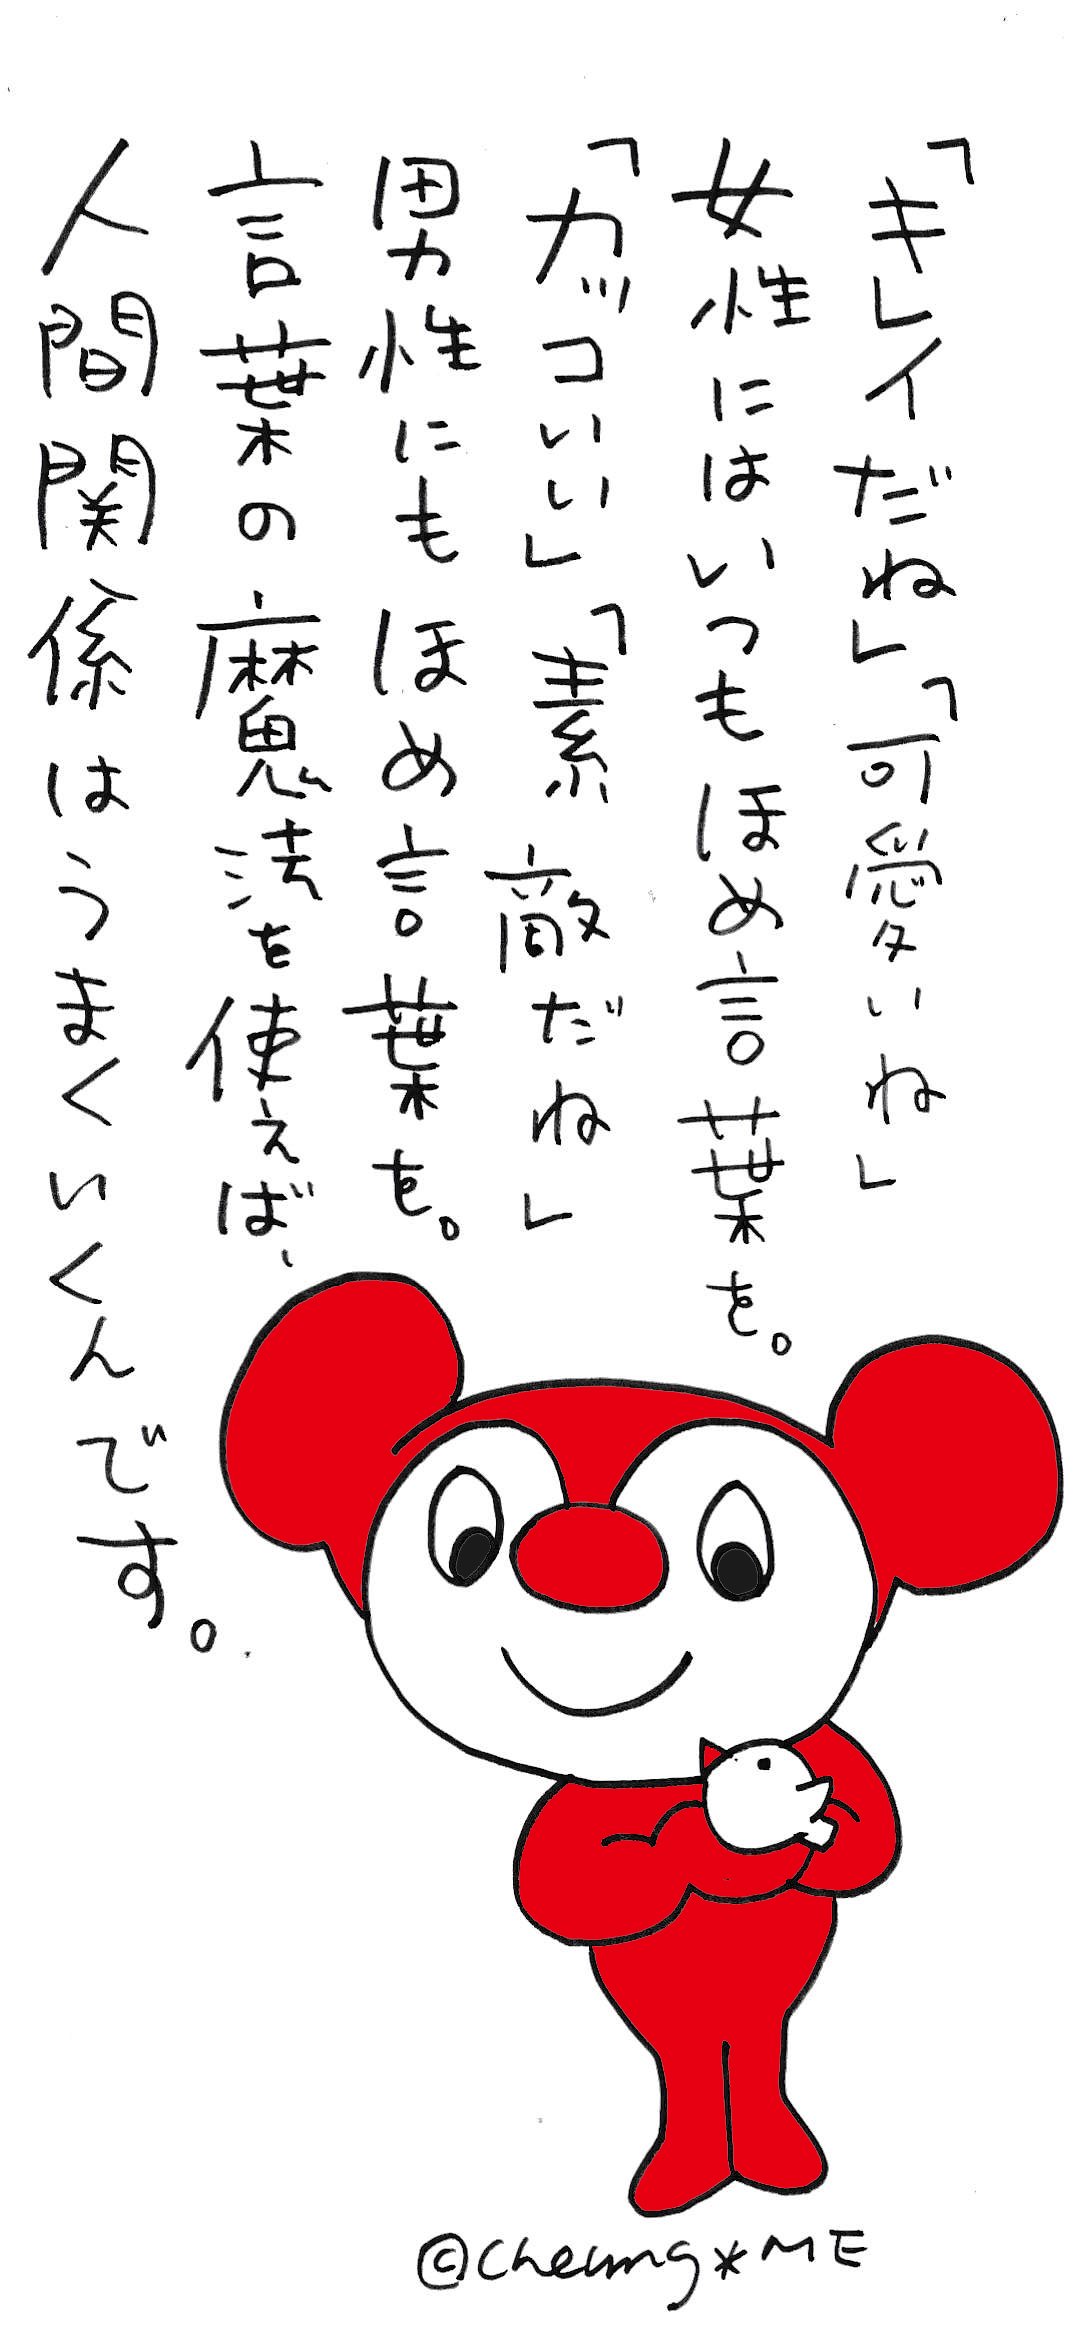 「キレイだね」「可愛いね」
女性にはいつもほめ言葉を。
「カッコいい」「素敵だね」
男性にもほめ言葉を。
言葉の魔法を使えば、
人間関係はうまくいくんです。
©Cheung*ME